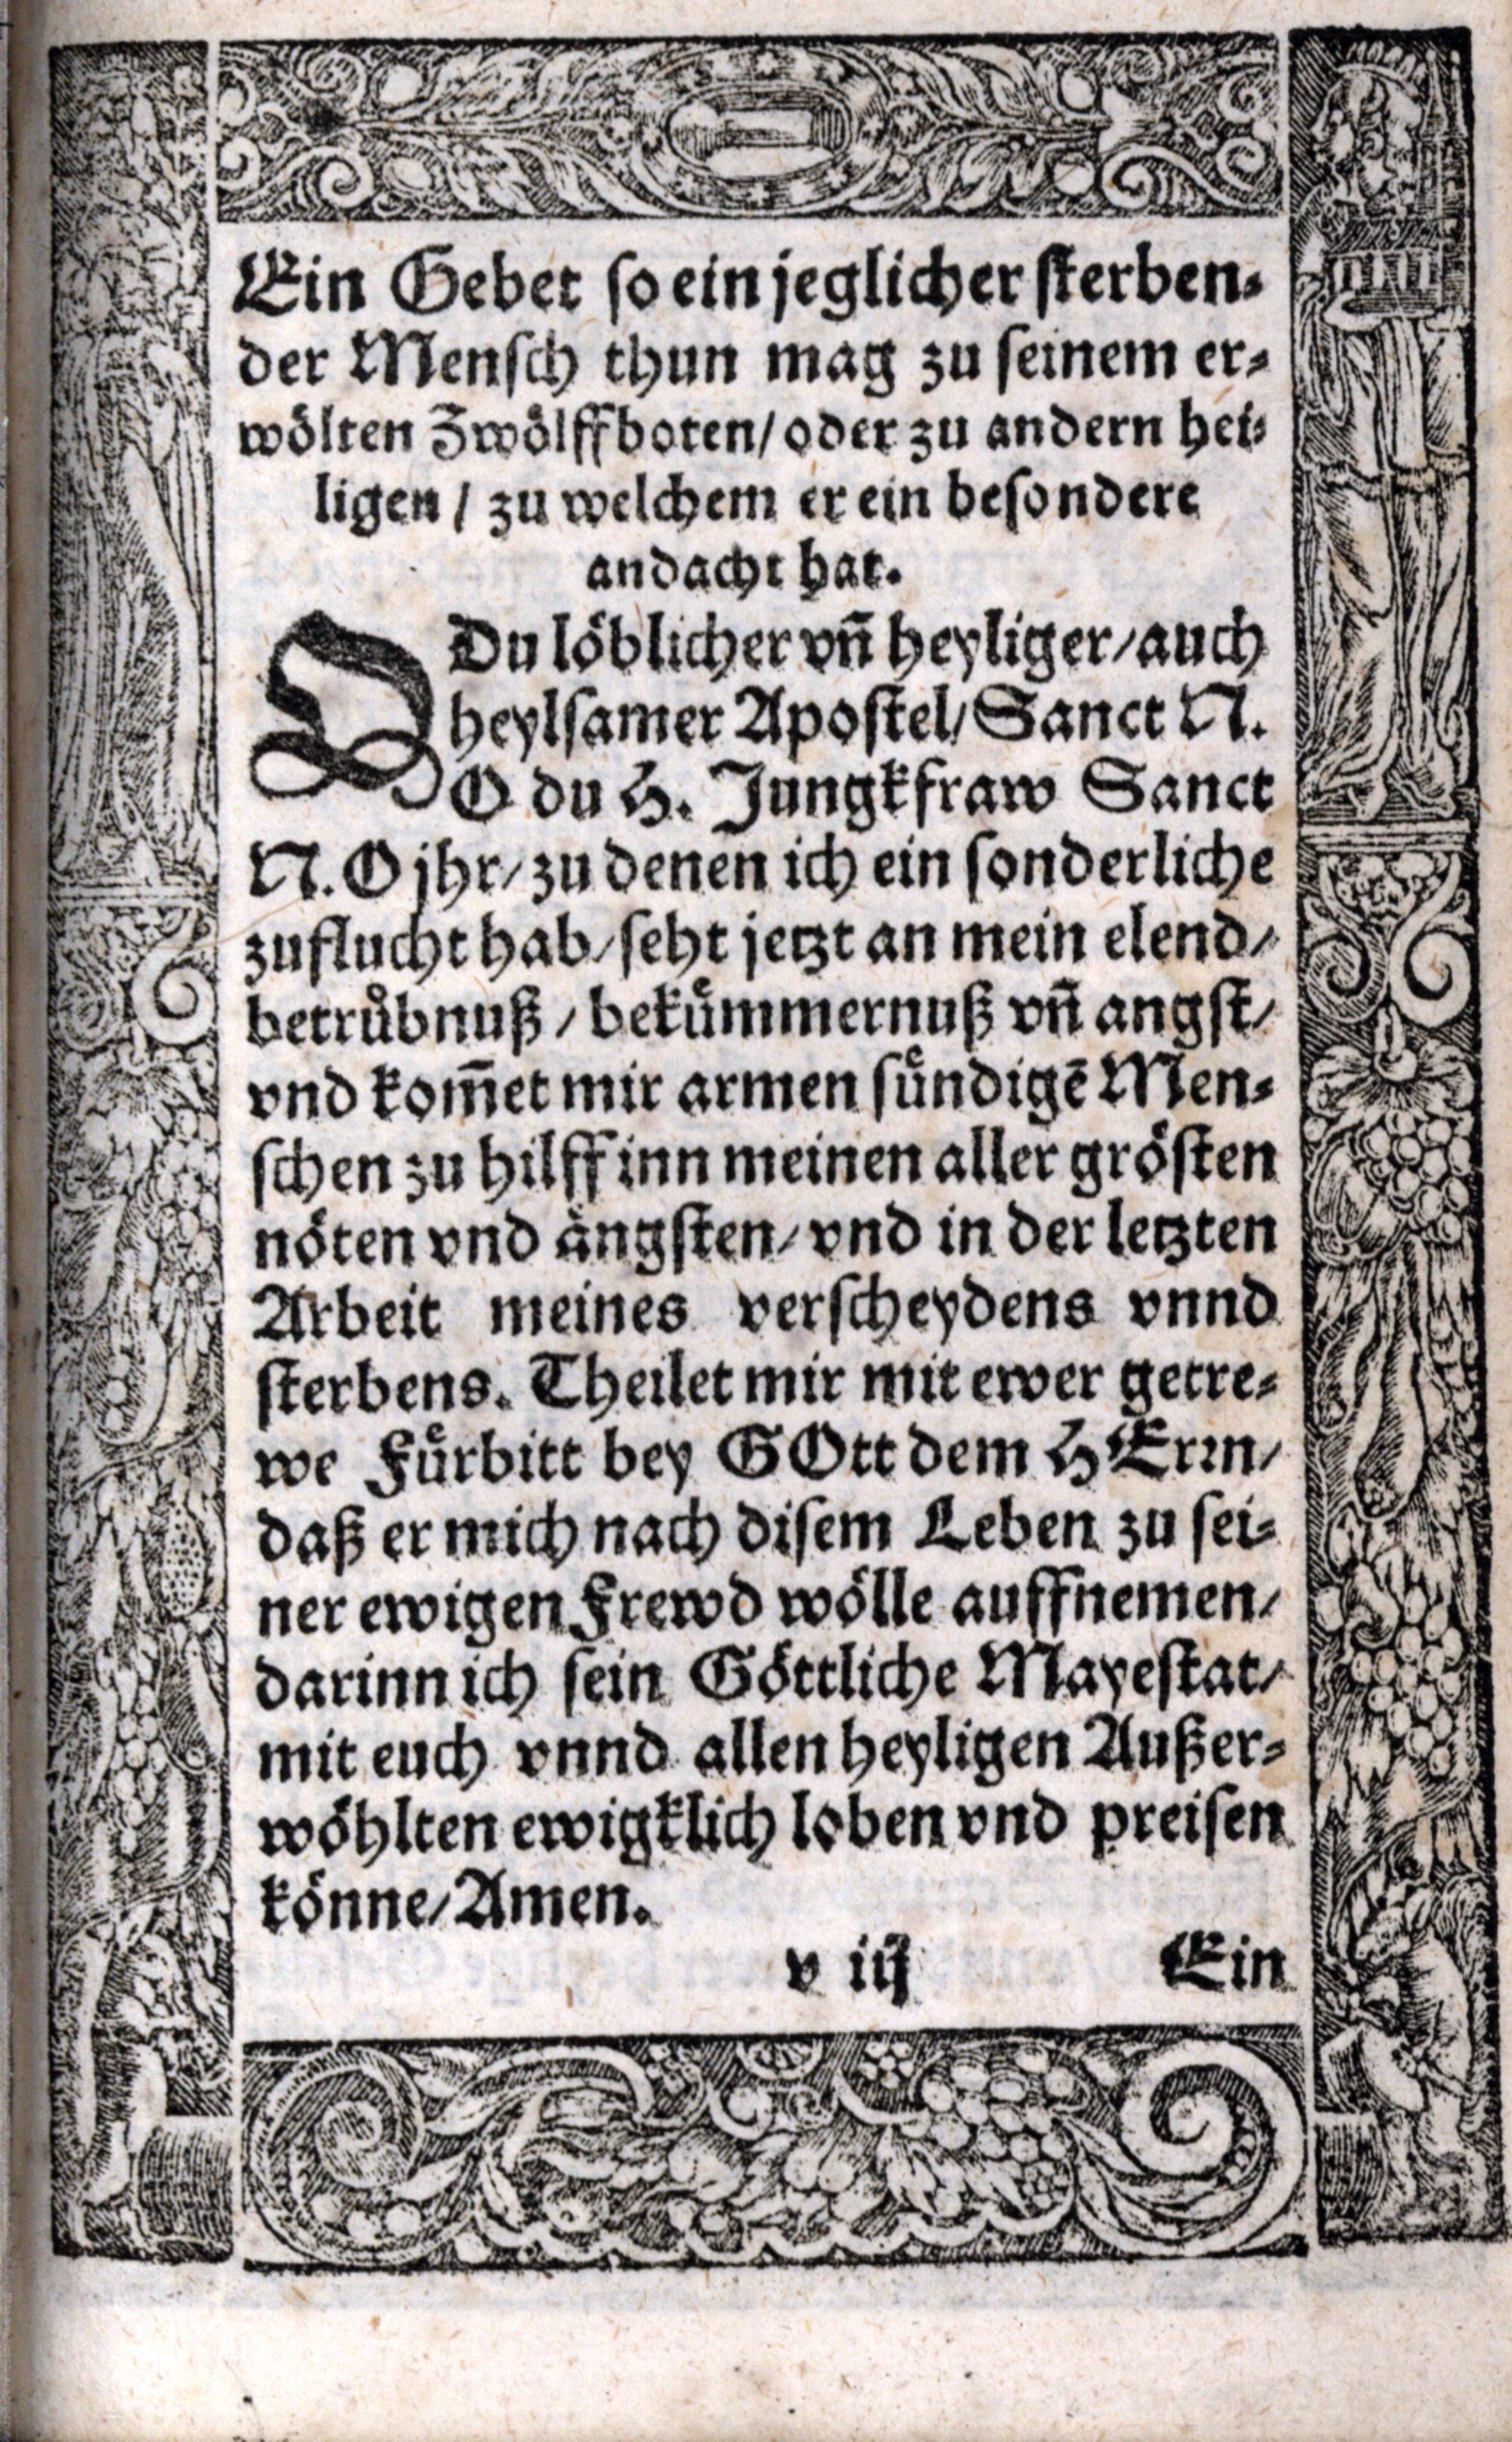 Ein Gebet so ein jeglicher sterben⸗
der Mensch thun mag zu seinem er⸗
wölten Zwölffboten / oder zu andern hei⸗
ligen / zu welchem er ein besondere
andacht hat.
O Du löblicher vñ heyliger / auch
heylsamer Apostel / Sanct N.
O du H. Jungkfraw Sanct
N. O jhr / zu denen ich ein sonderliche
zuflucht hab / seht jetzt an mein elend /
betrůbnuß / bekümmernuß vñ angst /
vnd kom̃et mir armen sündigē Men⸗
schen zu hilff inn meinen aller grösten
nöten vnd ängsten / vnd in der letzten
Arbeit meines verscheydens vnnd
sterbens. Theilet mir mit ewer getre⸗
we Fürbitt bey GOtt dem HErꝛn /
daß er mich nach disem Leben zu sei⸗
ner ewigen Frewd wölle auffnemen /
darinn ich sein Göttliche Mayestat /
mit euch vnnd allen heyligen Außer⸗
wöhlten ewigklich loben vnd preisen
könne / Amen.
v iiij Ein